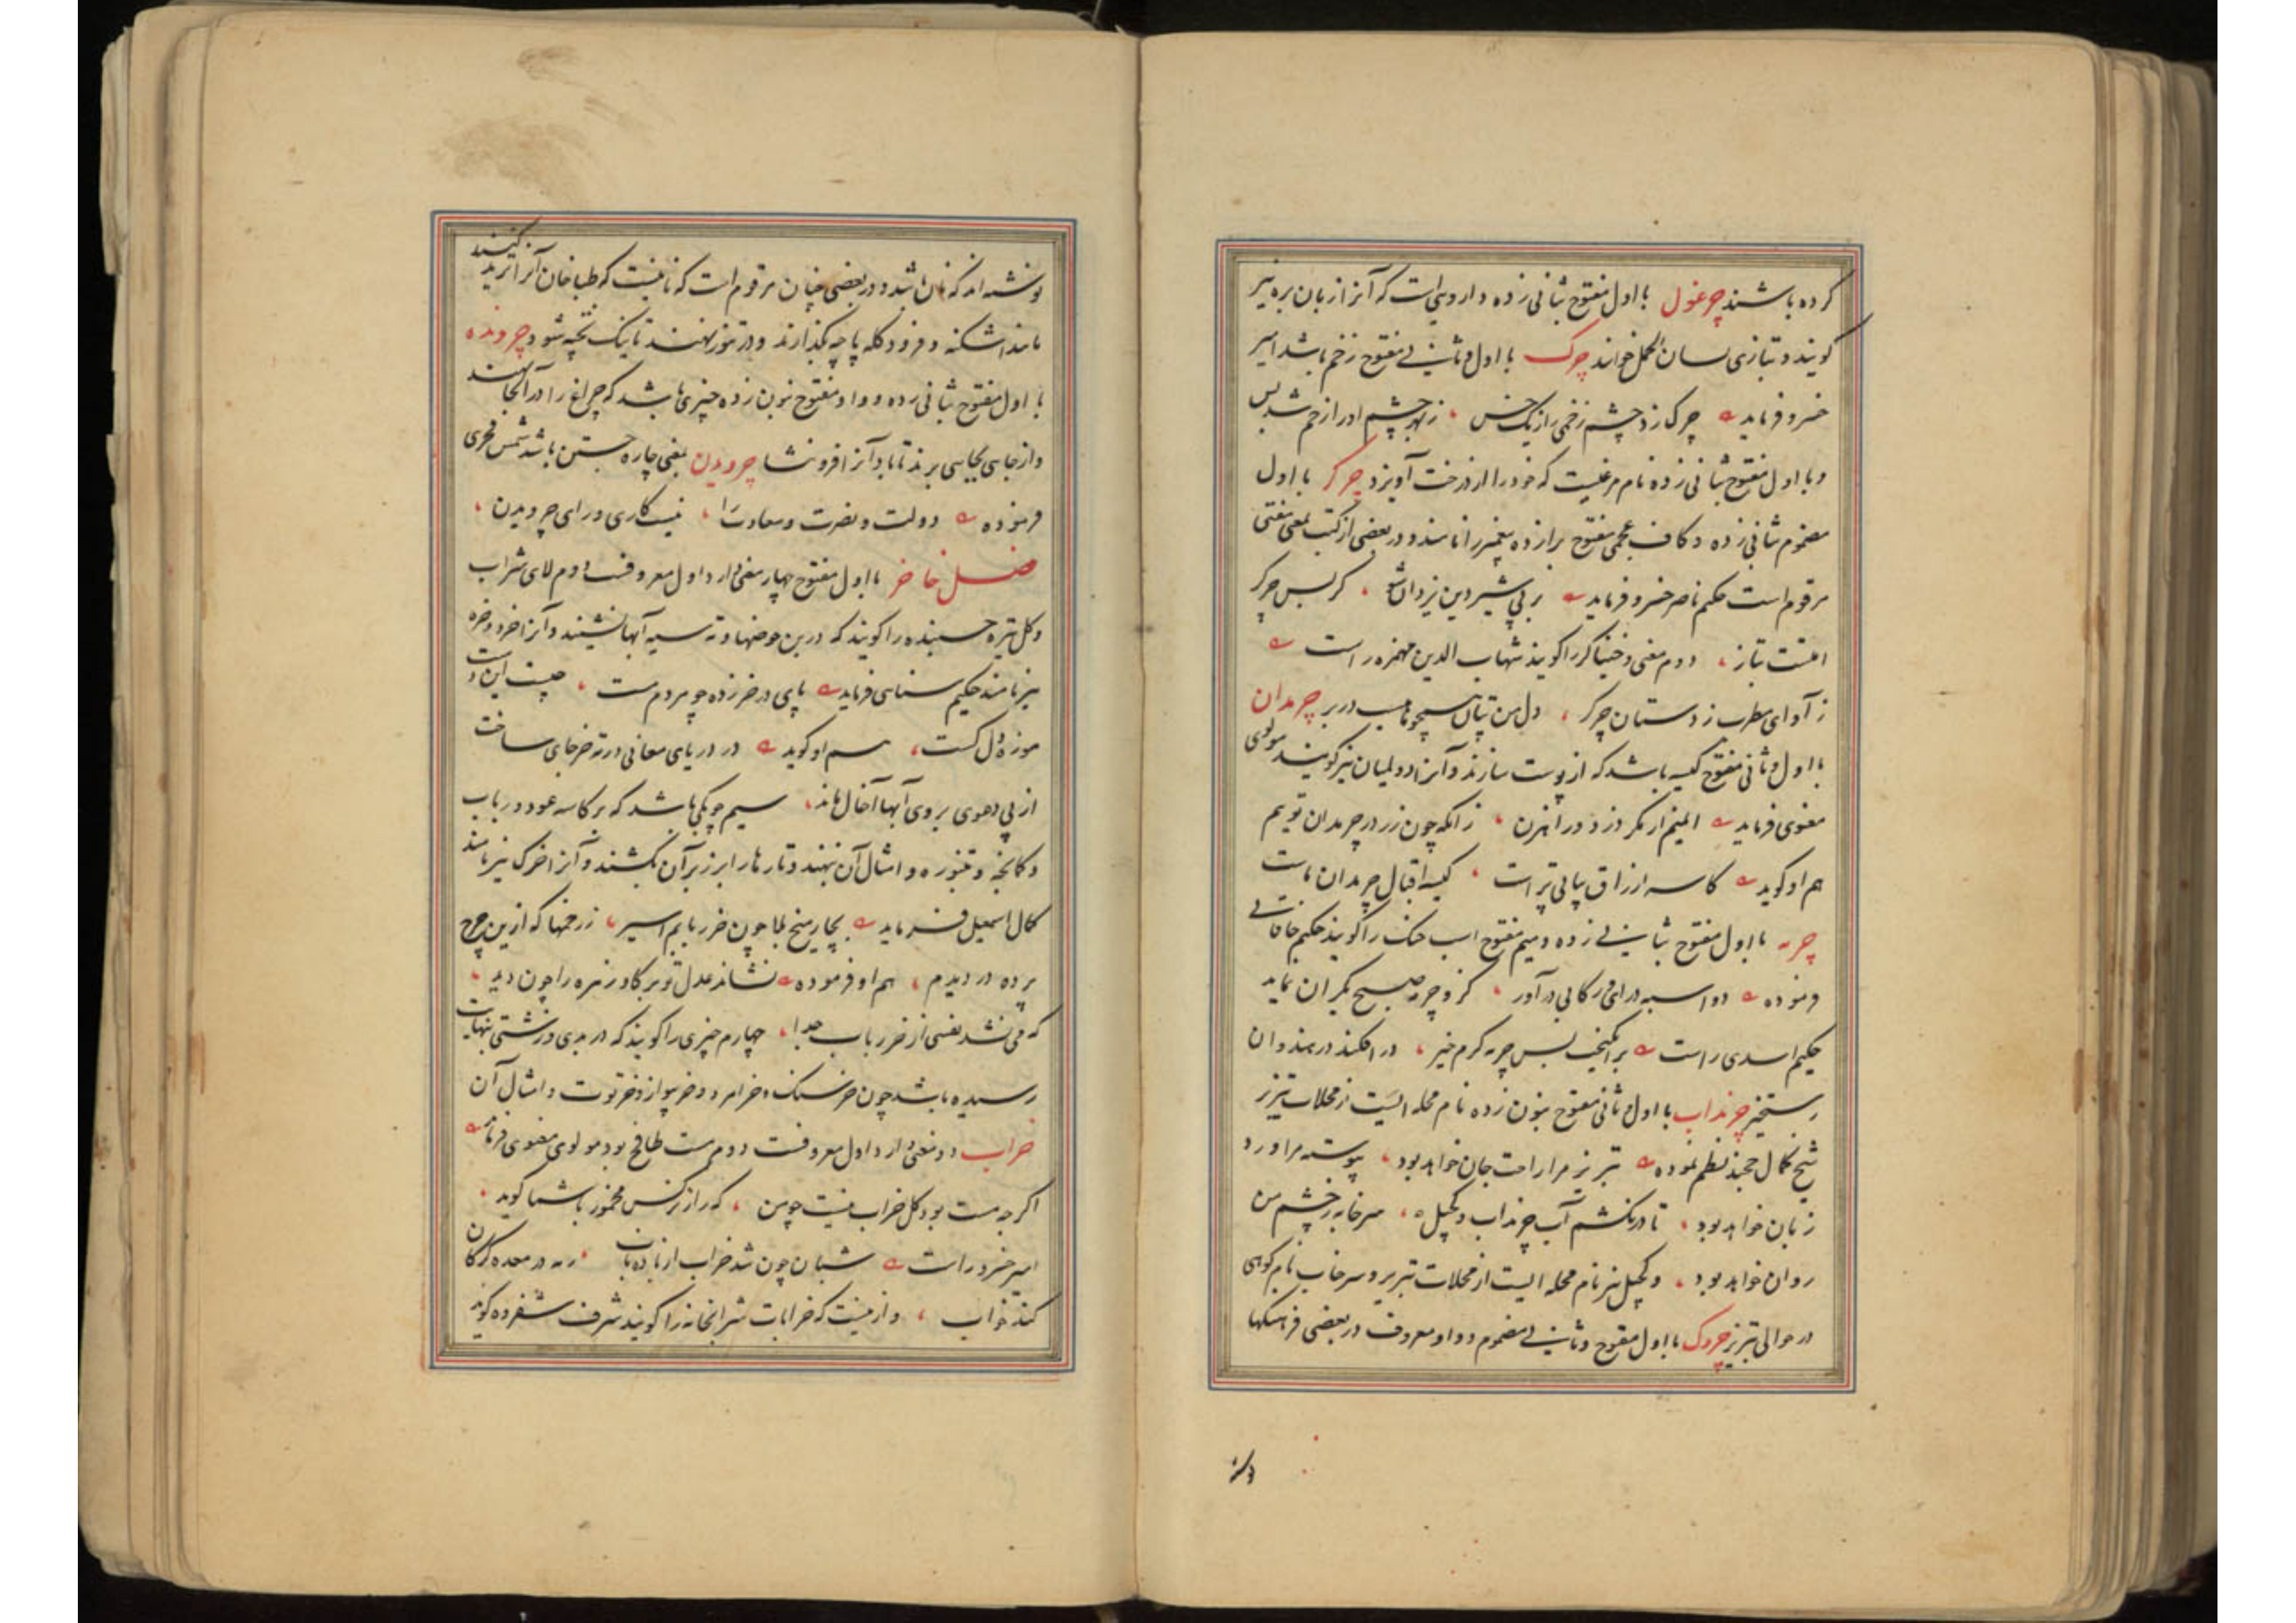 کرده باشند چرغول با اول مفتوح بثانی زده داروی است که آنرا زبان بره نیز
گویند و بتازی لسان الحمل خوانند چرک با اول و ثانی مفتوح زخم باشد امیر
خسرو فرماید چرک زد چشم زخمی را زیک خس ، زبهر چشم او را زخم شد بس
و با اول مفتوح بثانی زده نام مرغیست که خود را از درخت آویزد چرکر با اول
مضموم بثانی زده و کاف عجمی مفتوح برا زده پیغمبر را نامند و در بعضی از کتب بمعنی مفتی
مرقوم است حکیم ناصر خسرو فرماید بر پی شیر دین یزدان شو ، کز پس چرکر
امتت بتاز ، دوم مغنی و خنیاگر را گویند شهاب الدین مهمره راست
ز آوای مطرب ز دستان چرکر ، دل من تپان در بر چرمدان
با اول و ثانی مفتوح کیسه باشد که از پوست سازند و آنرا دولمیان نیز گویند مولوی
معنوی فرماید ایمنیم از مکر دزد و راهزن ، زانکه چون زر در چرمدان تویم
هم او گوید کاسه ارزاق پیاپی تر است ، کیسه اقبال چرمدان ماست
چرمه با اول مفتوح بثانی زده و میم مفتوح اسب خنک را گویند حکیم خاقانی
فرموده دو اسبه درای رکابی درآور ، کز و چرمه صبح یکران نماید
حکیم اسدی راست برانگیخت پس چرمه گرم خیز ، درافکند در هندوان
رستخیز چرنداب با اول و ثانی مفتوح بنون زده نام محله ایست از محلات تبریز
شیخ کمال خجند نظم نموده تبریز مرا راحت جان خواهد بود ، پیوسته مرا ورد
زبان خواهد بود ، تا درنکشم آب چرنداب و کجیل ، سرخاب ز چشم من
روان خواهد بود ، و کجیل نیز نام محله ایست از محلات تبریز و سرخاب نام کوهی
در حوالی تبریز چروک با اول مفتوح و ثانی مضموم و واو معروف در بعضی فرهنگها
نوشته اند که نان باشد و در بعضی چنان مرقوم است که نانیست که طباخان آنرا ترید کنند
مانند اشکنه و فرود کله پاچه گذارند و در تنور نهند تا نیک پخته شود چرونده
با اول مفتوح بثانی زده و واو مفتوح بنون زده چیزی باشد که چراغ را در آنجا نهند
و از جایی بجایی برند تا باد آنرا فرو ننشاند چرویدن بمعنی چاره جستن باشد شمس فخری
فرموده دولت و نصرت و سعادت را ، نیست کاری ورای چرویدن ،
فصل خا خر با اول مفتوح چهار معنی دارد اول معروفست دوم لای شراب
و گل تیره چسبنده را گویند که در بن حوضها و ته سیه آبها نشیند و آنرا خرد و خره
نیز نامند حکیم سنایی فرماید پای در خر زده چو مردم مست ، چیست این
موزه دل گست ، هم او گوید در دریای معانی در ته خر جای ساخت
از پی دعوی بروی آبها آخال ماند ، سیم چوبکی باشد که بر کاسه عود و رباب
و کمانچه و طنبوره و امثال آن نهند و تارها را بر زبر آن بکشند و آنرا خرک نیز نامند
کمال اسمعیل فرماید بچار میخ بلا چون خر ربابم اسیر ، ز زخمها که ازین چرخ
پرده در دیدم ، هم او فرموده نشاند عدل تو بر گاو زهره را چون دید ،
که می نشد نفسی از خر رباب جدا ، چهارم چیزی را گویند که در بدی و زشتی بنهایت
رسیده باشد چون خرسنگ و خرامرود و خرپواز و خرتوت و امثال آن
خراب دو معنی دارد اول معروفست دوم مست طافح بود مولوی معنوی فرماید
اگرچه مست بود کل خراب نیست چو من ، که راز نرگس مخمور با شما گوید ،
امیر خسرو راست شبان چون شد خراب از باده ناب ، رمه در معده گرگان
کند خواب ، و ازینست که خرابات شرابخانه را گویند شرف شفروه گوید
نوشته